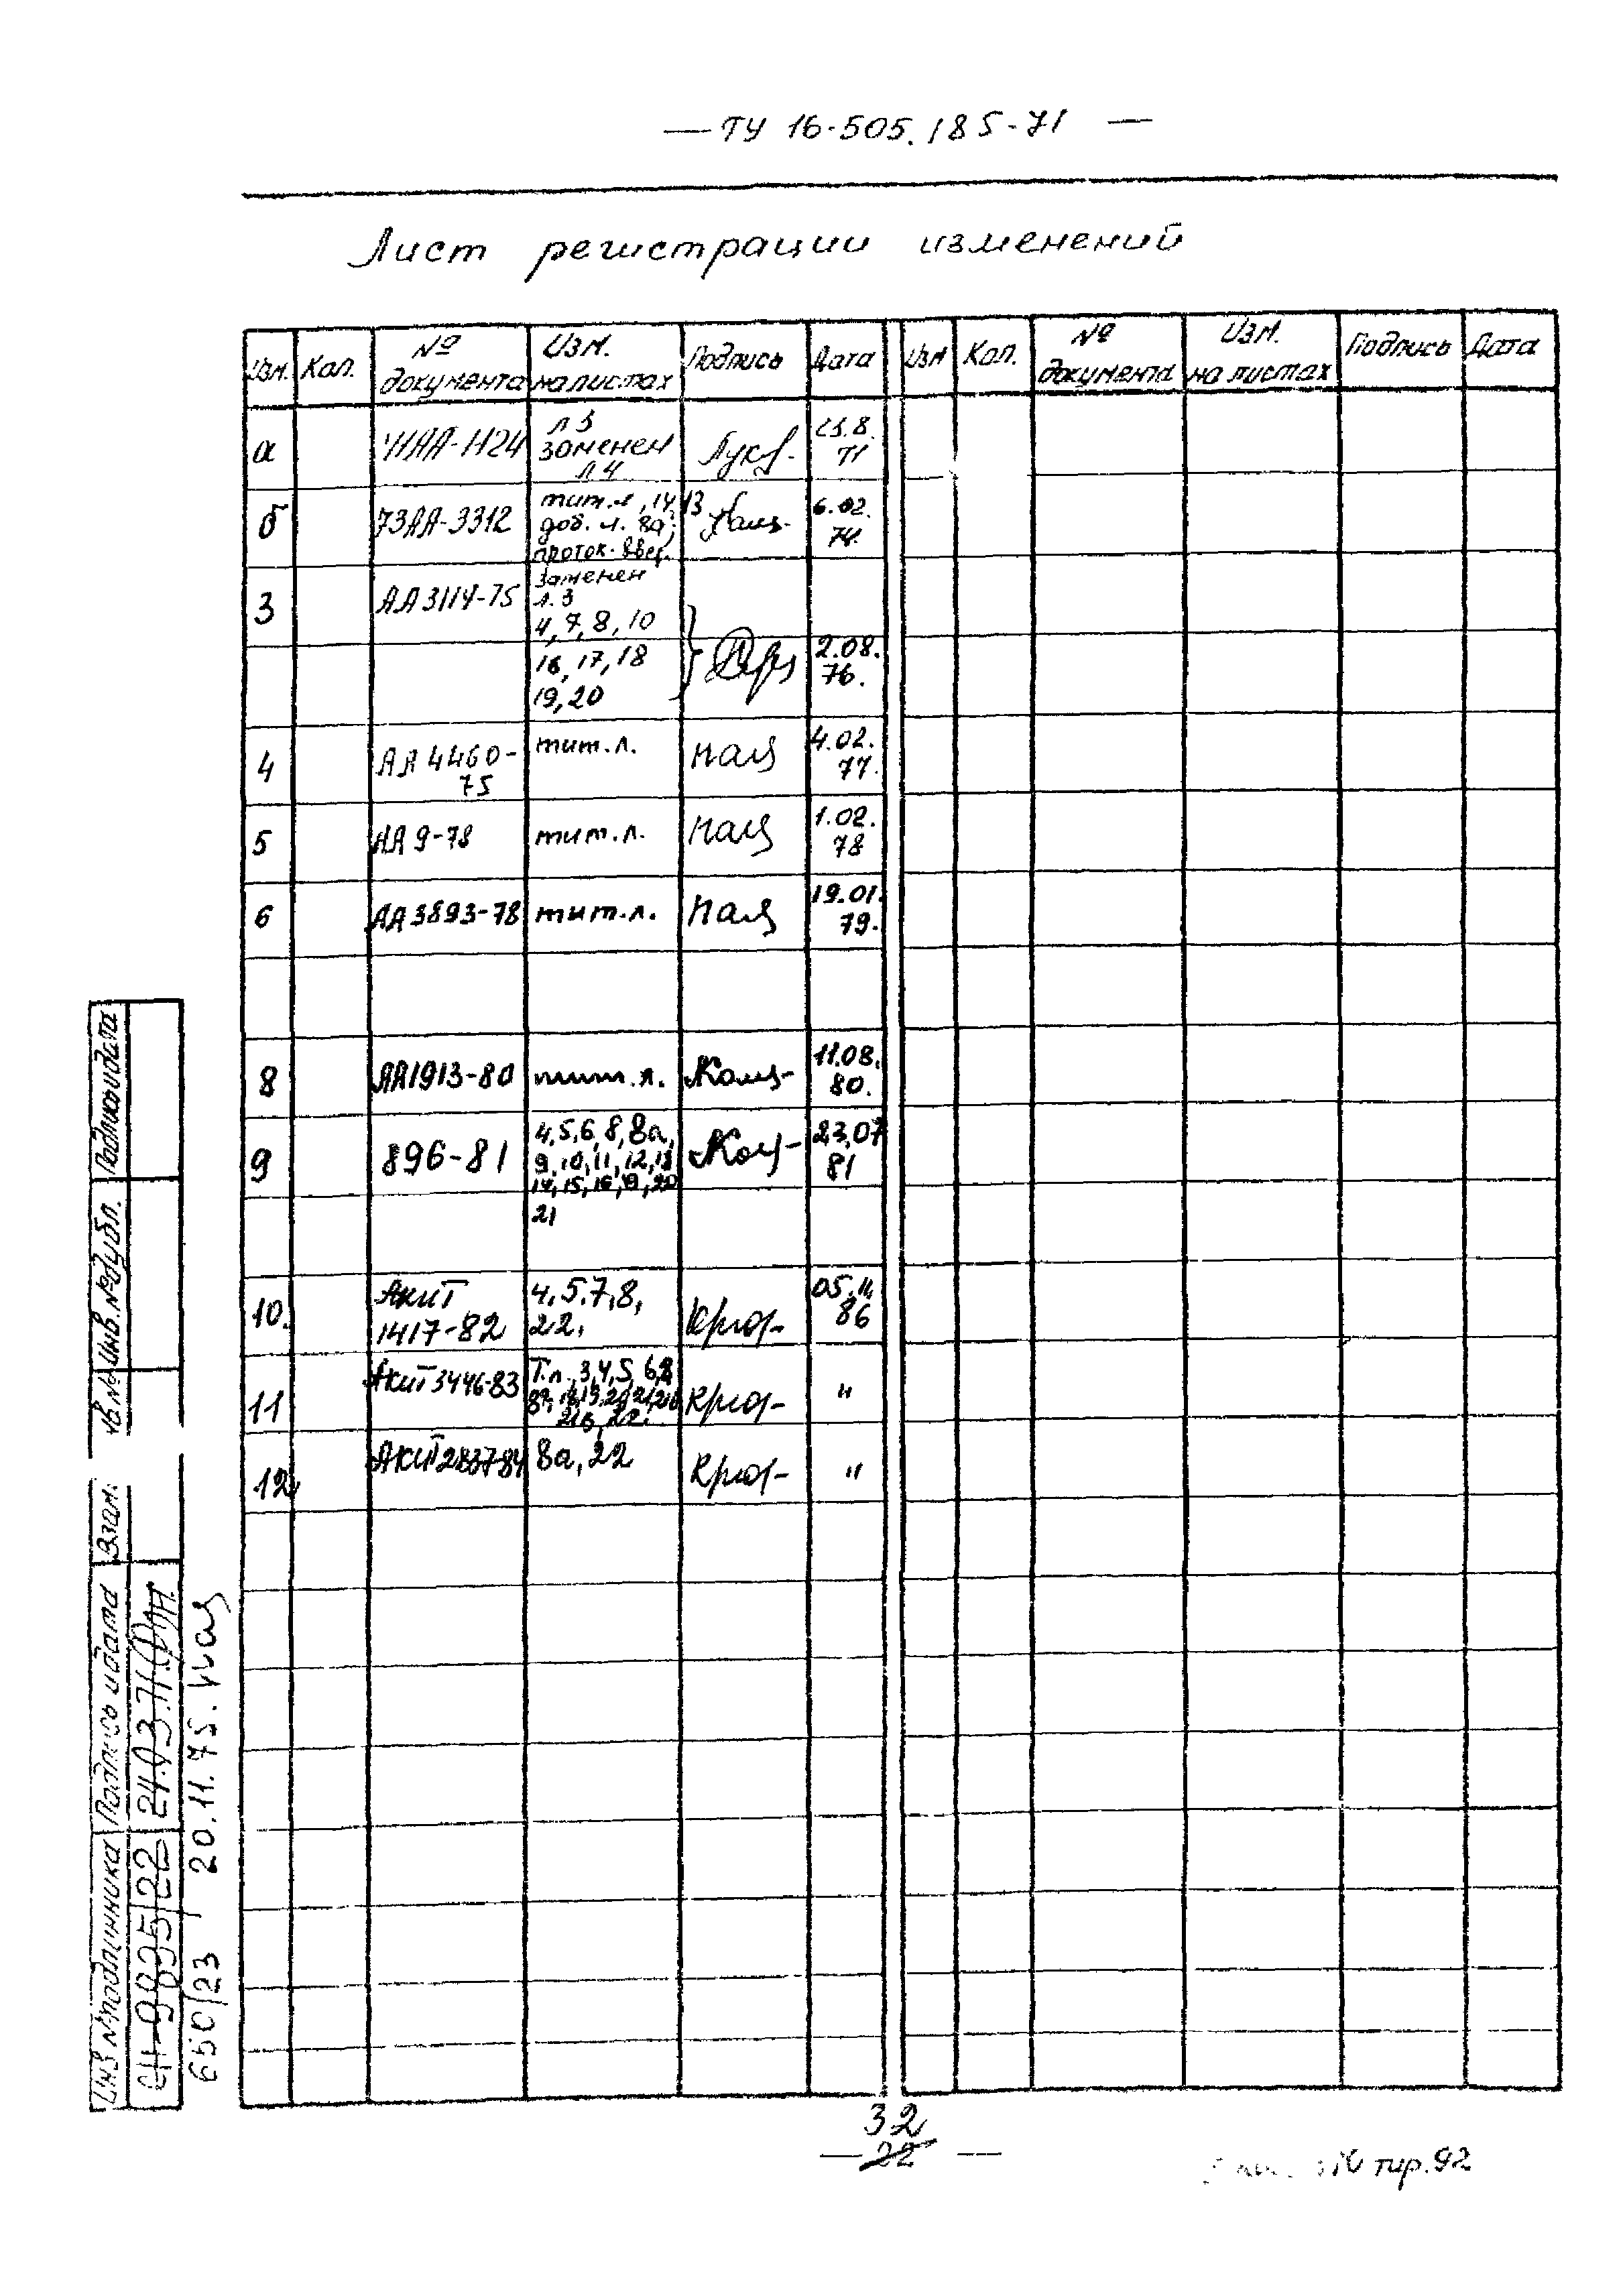 — ТУ 16-505.185-71 —
Лист регистрации изменений
Изм. Кол. № документа Изм. на листах Подпись Дата Изм Кол. № документа Изм. на листах Подпись Дата
а 71АА-1124 л 3 заменен л.4 8. 71
б 73АА-3312 тит.л, 14, 13 доб. л. 8а, проток. 6.02. 74.
3 АА3114-75 заменен л.3 4, 7, 8, 10
16, 17, 18 19, 20 2.08. 76.
4 АА 4460-75 тит.л. 4.02. 77.
5 АА 9-78 тит.л. 1.02. 78
6 АА3893-78 тит.л. 19.01. 79.
8 АА1913-80 тит.л. 11.08. 80.
9 896-81 4,5,6,8,8а, 9,10,11,12,13 14,15,16,19,20 23.07 81
21
10. АКИТ 1417-82 4,5,7,8, 22, 05.11. 86
11 АКИТ3446-83 Т.л., 3,4,5,6,8 22. "
12 АКИТ2837-84 8а, 22 "
Инв № подлинника Подпись и дата Взам. инв № Инв. № дубл. Подпись и дата
22 24.03.71
650/23 20.11.75.
32
— 22 —
тир. 92